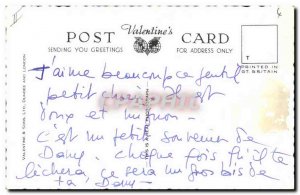 Valentine's
POST CARD
SENDING YOU GREETINGS
FOR ADDRESS ONLY
T
PRINTED IN
GT. BRITAIN
VALENTINE & SONS, LTD., DUNDEE AND LONDON
J'aime beaucoup ce gentil
petit chien. Il est
doux et mignon -
c'est un petit souvenir de
Dany. Chaque fois qu'il te
lèchera, ce sera un gros bais de
ta Dany -